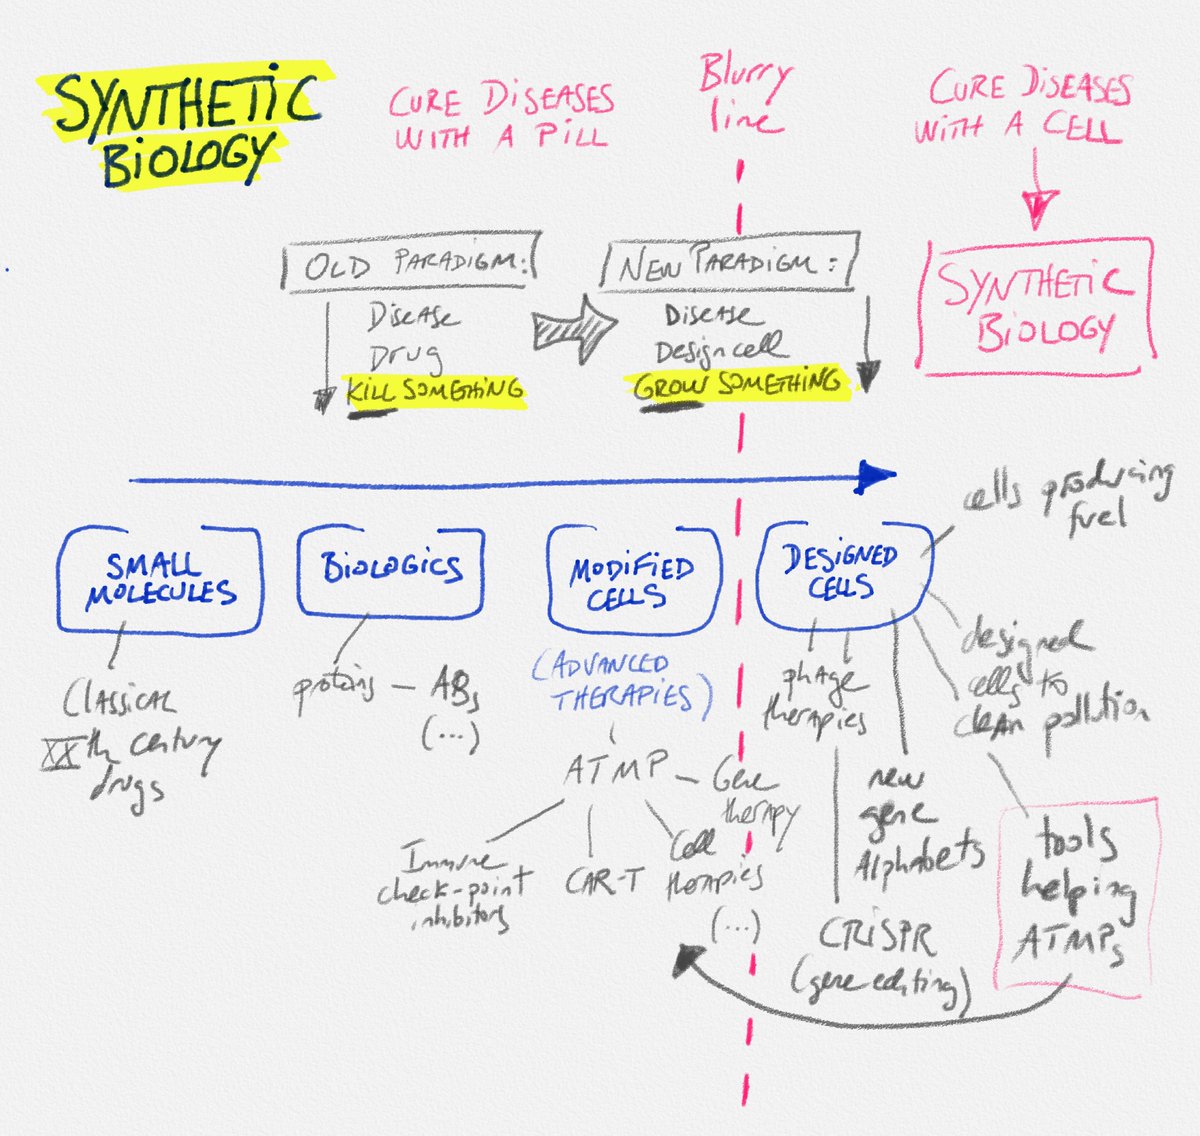 SYNTHETIC
BIOLOGY
CURE DISEASES
WITH A PILL
Blurry
line
CURE DISEASES
WITH A CELL
OLD PARADIGM:
Disease
Drug
KILL SOMETHING
NEW PARADIGM:
Disease
Design cell
GROW SOMETHING
SYNTHETIC
BIOLOGY
SMALL
MOLECULES
BIOLOGICS
MODIFIED
CELLS
DESIGNED
CELLS
cells producing
fuel
Classical
XXth century
drugs
proteins – ABs
(...)
(ADVANCED
THERAPIES)
ATMP
Gene
therapy
Immune
check-point
inhibitors
CAR-T
Cell
therapies
(...)
phage
therapies
new
gene
Alphabets
CRISPR
(gene editing)
designed
cells to
clean pollution
tools
helping
ATMPs